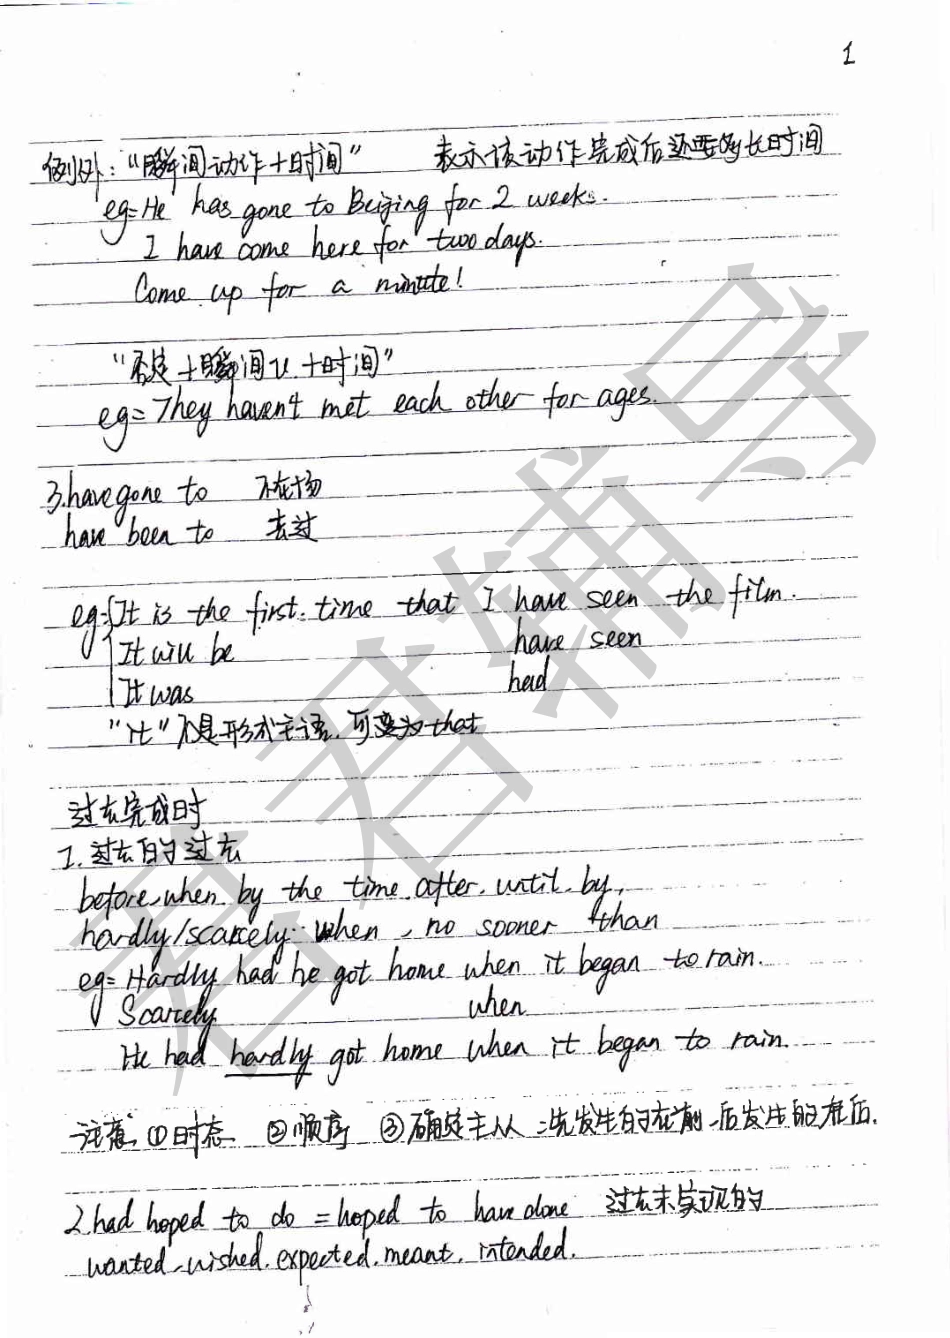 1
例外："瞬间动作+时间" 表示该动作完成后还要多长时间
eg= He has gone to Beijing for 2 weeks.
I have come here for two days.
Come up for a minute!
"否定+瞬间v.+时间"
eg= They haven't met each other for ages.
3.have gone to 不在场
have been to 去过
eg= It is the first time that I have seen the film.
It will be have seen
It was had
"it"不是形式主语,可变为that
过去完成时
1.过去的过去
before,when by the time.after.until.by,
hardly/scarcely when, no sooner than
eg= Hardly had he got home when it began to rain.
Scarcely when
He had hardly got home when it began to rain.
注意 ①时态 ②顺序 ③确定主从：先发生的在前,后发生的在后.
2.had hoped to do = hoped to have done 过去未实现的
wanted,wished.expected.meant.intended.
君君辅导